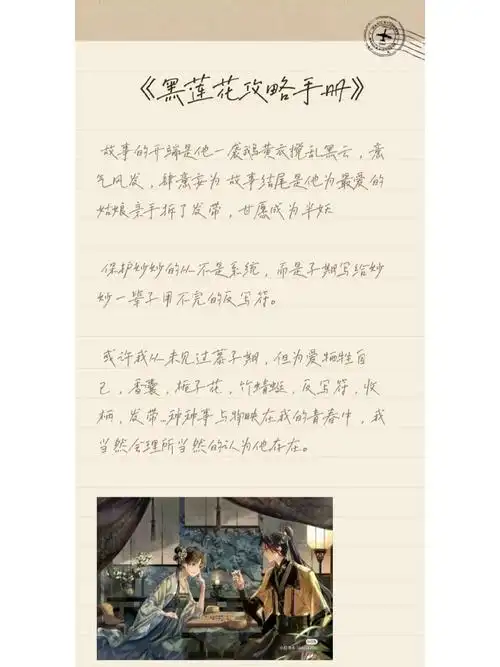 《黑莲花攻略手册》
故事的开端是他一袭鹅黄衣搅乱黑云，意
气风发，肆意妄为 故事结尾是他为最爱的
姑娘亲手拆了发带，甘愿成为半妖
保护妙妙的从不是系统，而是子期写给妙
妙一辈子用不完的反写符。
或许我从未见过慕子期，但为爱牺牲自
己，香囊，栀子花，竹蜻蜓，反写符，收
妖柄，发带..种种事与物映在我的青春中，我
当然会理所当然的认为他存在。